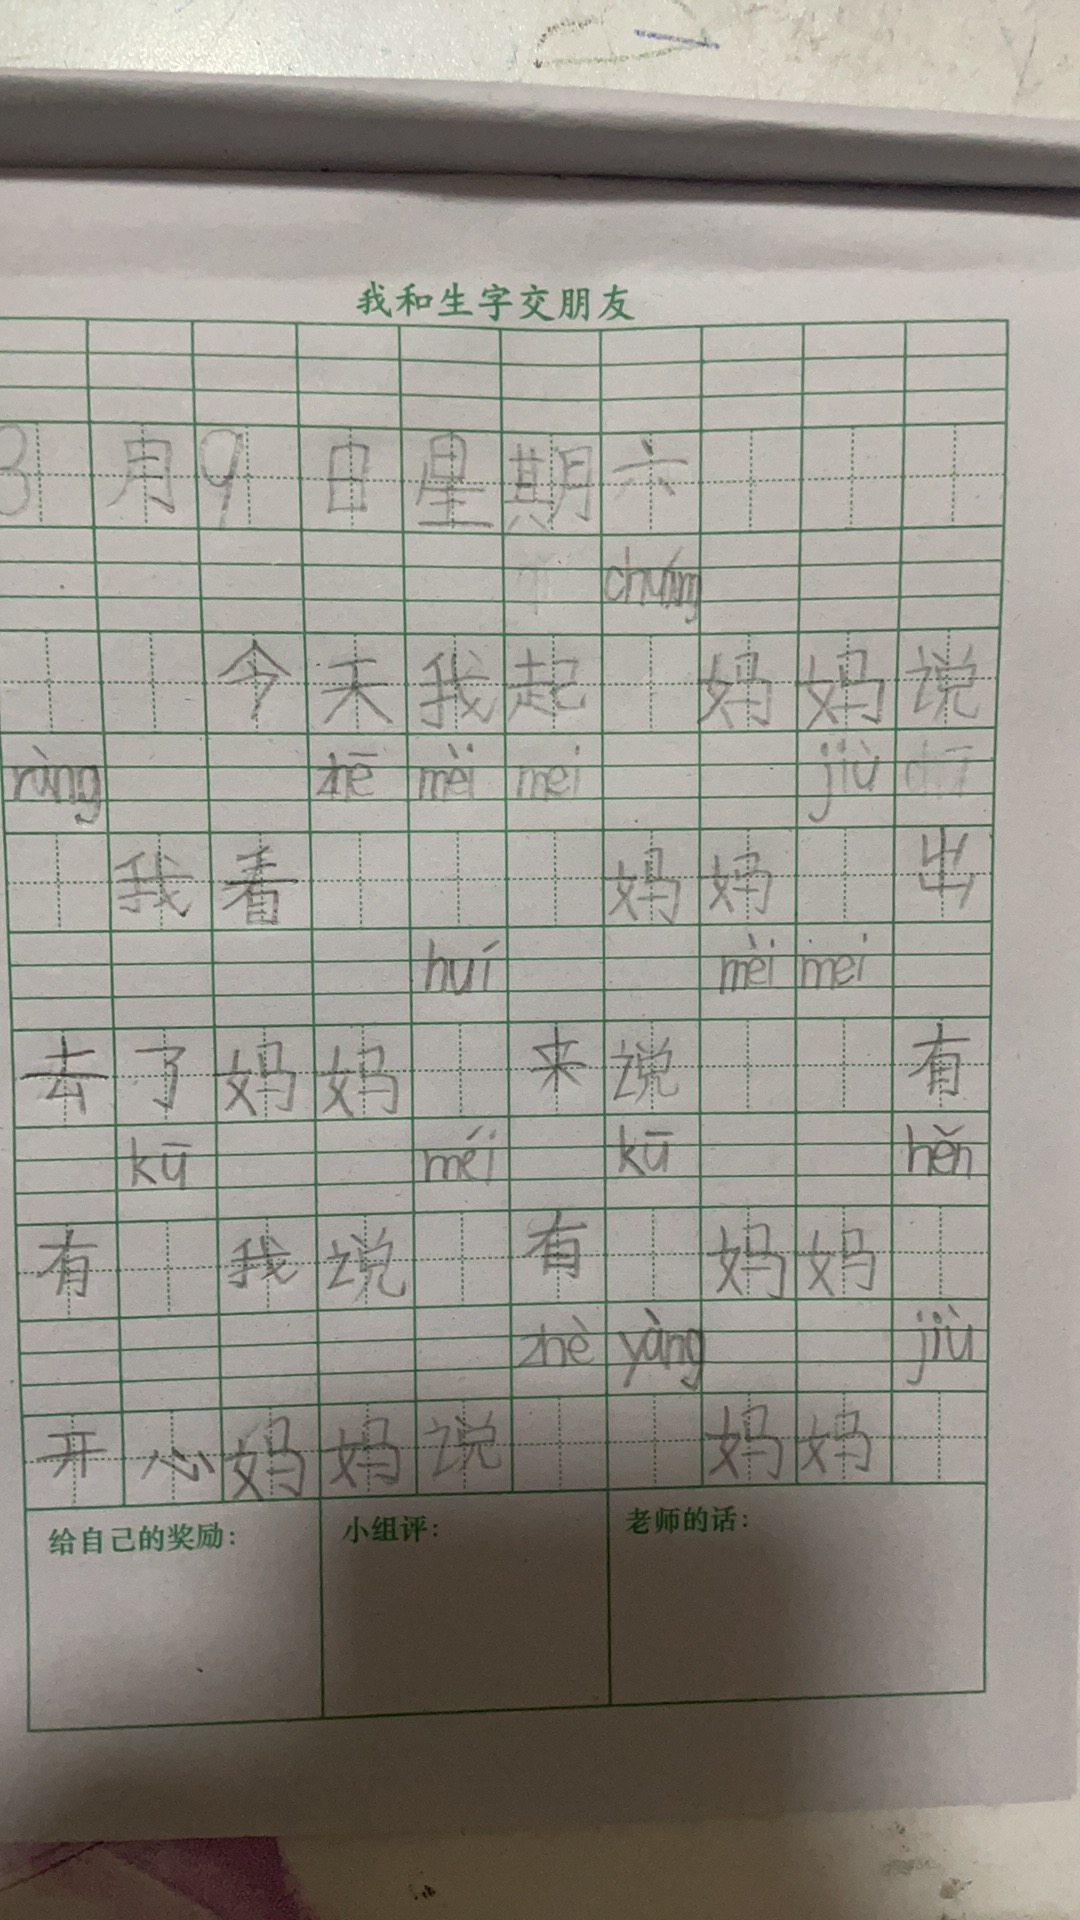 我和生字交朋友
3月9日星期六
chuáng
今天我起 妈妈说
ràng zhē mèi mei jiù
我看 妈妈 出
huí mèi mei
去了妈妈 来说 有
kū méi kū hěn
有 我说 有 妈妈
zhè yàng jiù
开心妈妈说 妈妈
给自己的奖励：
小组评：
老师的话：